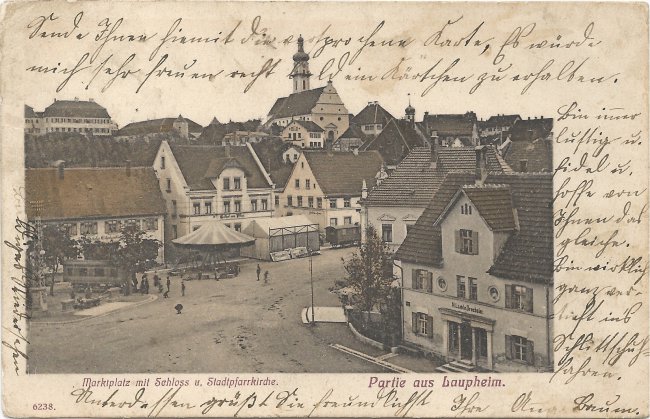 Sende Ihnen hiemit die versprochene Karte, Es würde
mich sehr freuen recht bald ein Kärtchen zu erhalten.
Bin immer
lustig u.
fidel u.
hoffe von
Ihnen das
gleiche.
Bin wirklich
ganz ver-
liebt ins
Schlittschuh
fahren.
Marktplatz mit Schloss u. Stadtpfarrkirche.
Partie aus Laupheim.
6238.
Unterdessen grüßt Sie freundlichst Ihre Anna Baum.